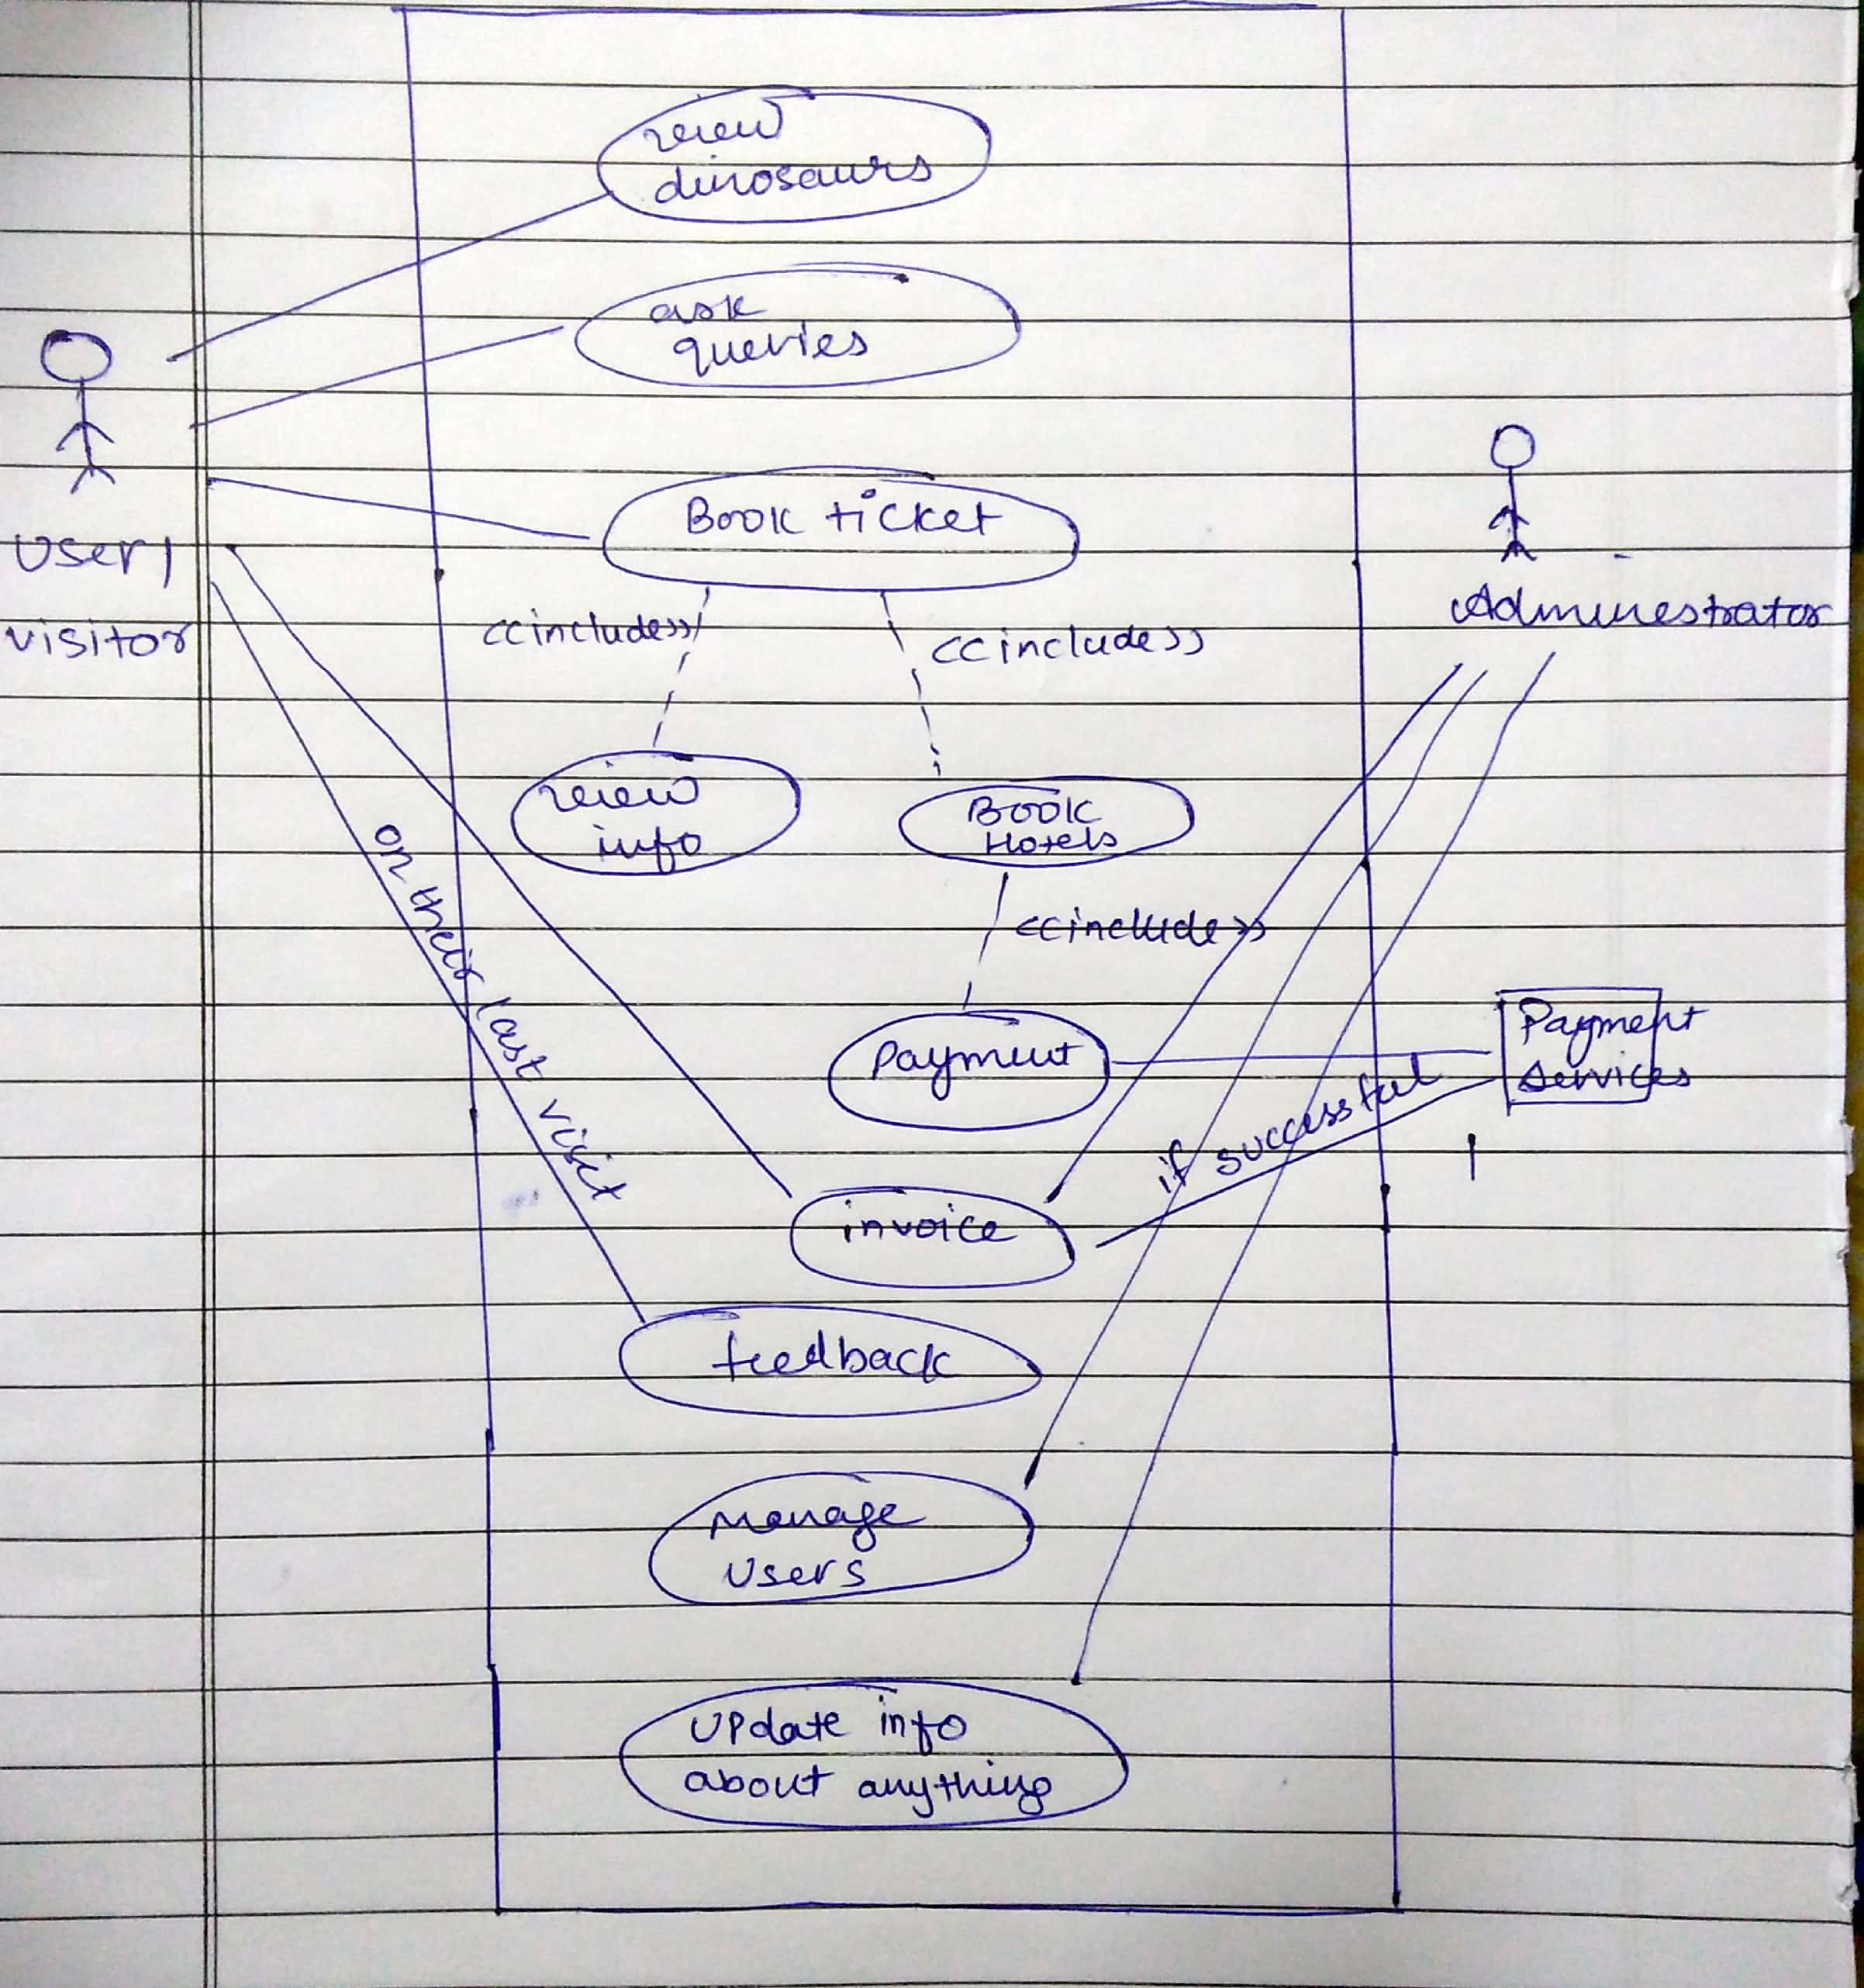 view
dinosaurs
ask
queries
Book ticket
User/
visitor
Administrator
<<include>>
<<include>>
view
info
Book
Hotels
on their last visit
<<include>>
Payment
Payment
Services
if successful
invoice
feedback
Manage
Users
Update info
about anything